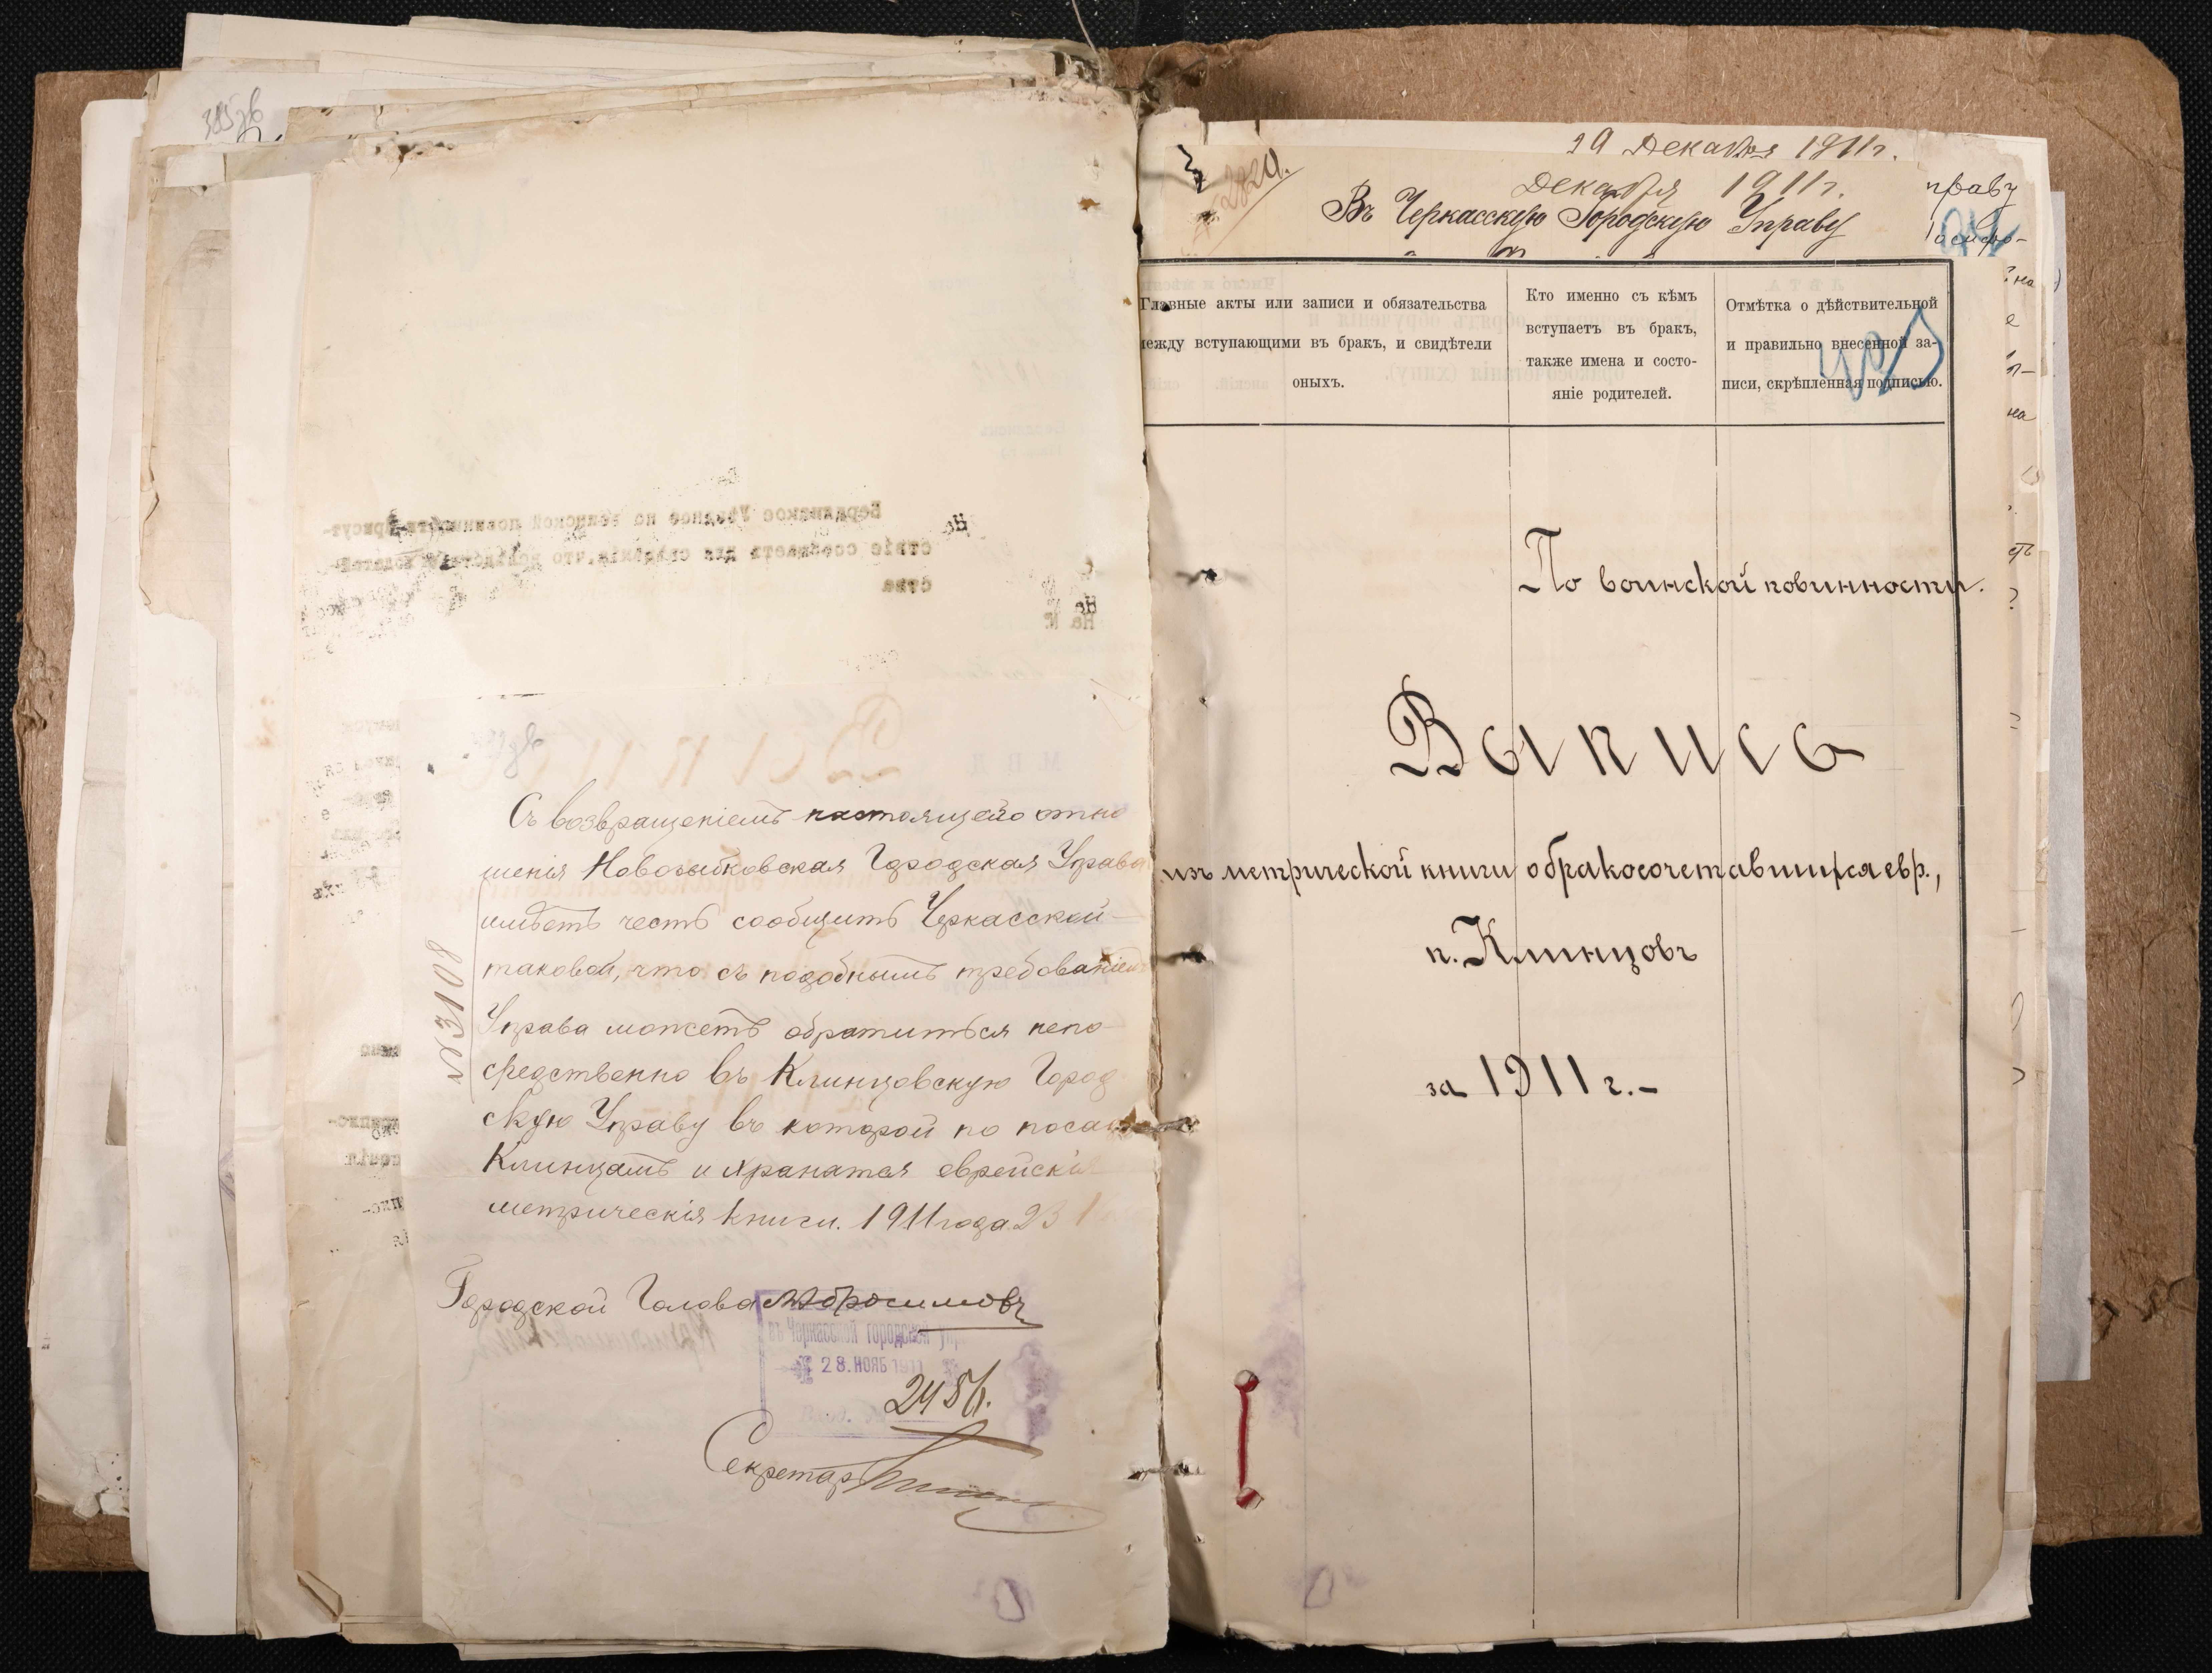 Съ возвращеніемъ настоящаго отно
шенія Новозыбковская Городская Управа
имѣетъ честь сообщить Черкасской
таковой, что съ подобнымъ требованіемъ
Управа можетъ обратиться непо-
средственно въ Клинцовскую Город
скую Управу въ которой по посаду
Клинцамъ и хранятся еврейскія
метрическія книги. 1911 года 23
№3108
Городской Голова Абросимовъ
въ Черкасской городской упр
28. НОЯБ 1911
Вход. №
2456.
Секретарь
Бердянское Уѣздное по воинской повинности Присут-
ствіе сообщаетъ для свѣдѣнія, что
ства
На №
19 Декабря 1911г.
Декабря 1911г.
Въ Черкасскую Городскую Управу
праву
Главные акты или записи и обязательства
между вступающими въ бракъ, и свидѣтели
оныхъ.
Кто именно съ кѣмъ
вступаетъ въ бракъ,
также имена и состо-
яніе родителей.
Отмѣтка о дѣйствительной
и правильно внесенной за-
писи, скрѣпленная подписью.
По воинской повинности.
Выпись
изъ метрической книги о бракосочетавшихся евр.,
п. Клинцовъ
за 1911 г.-